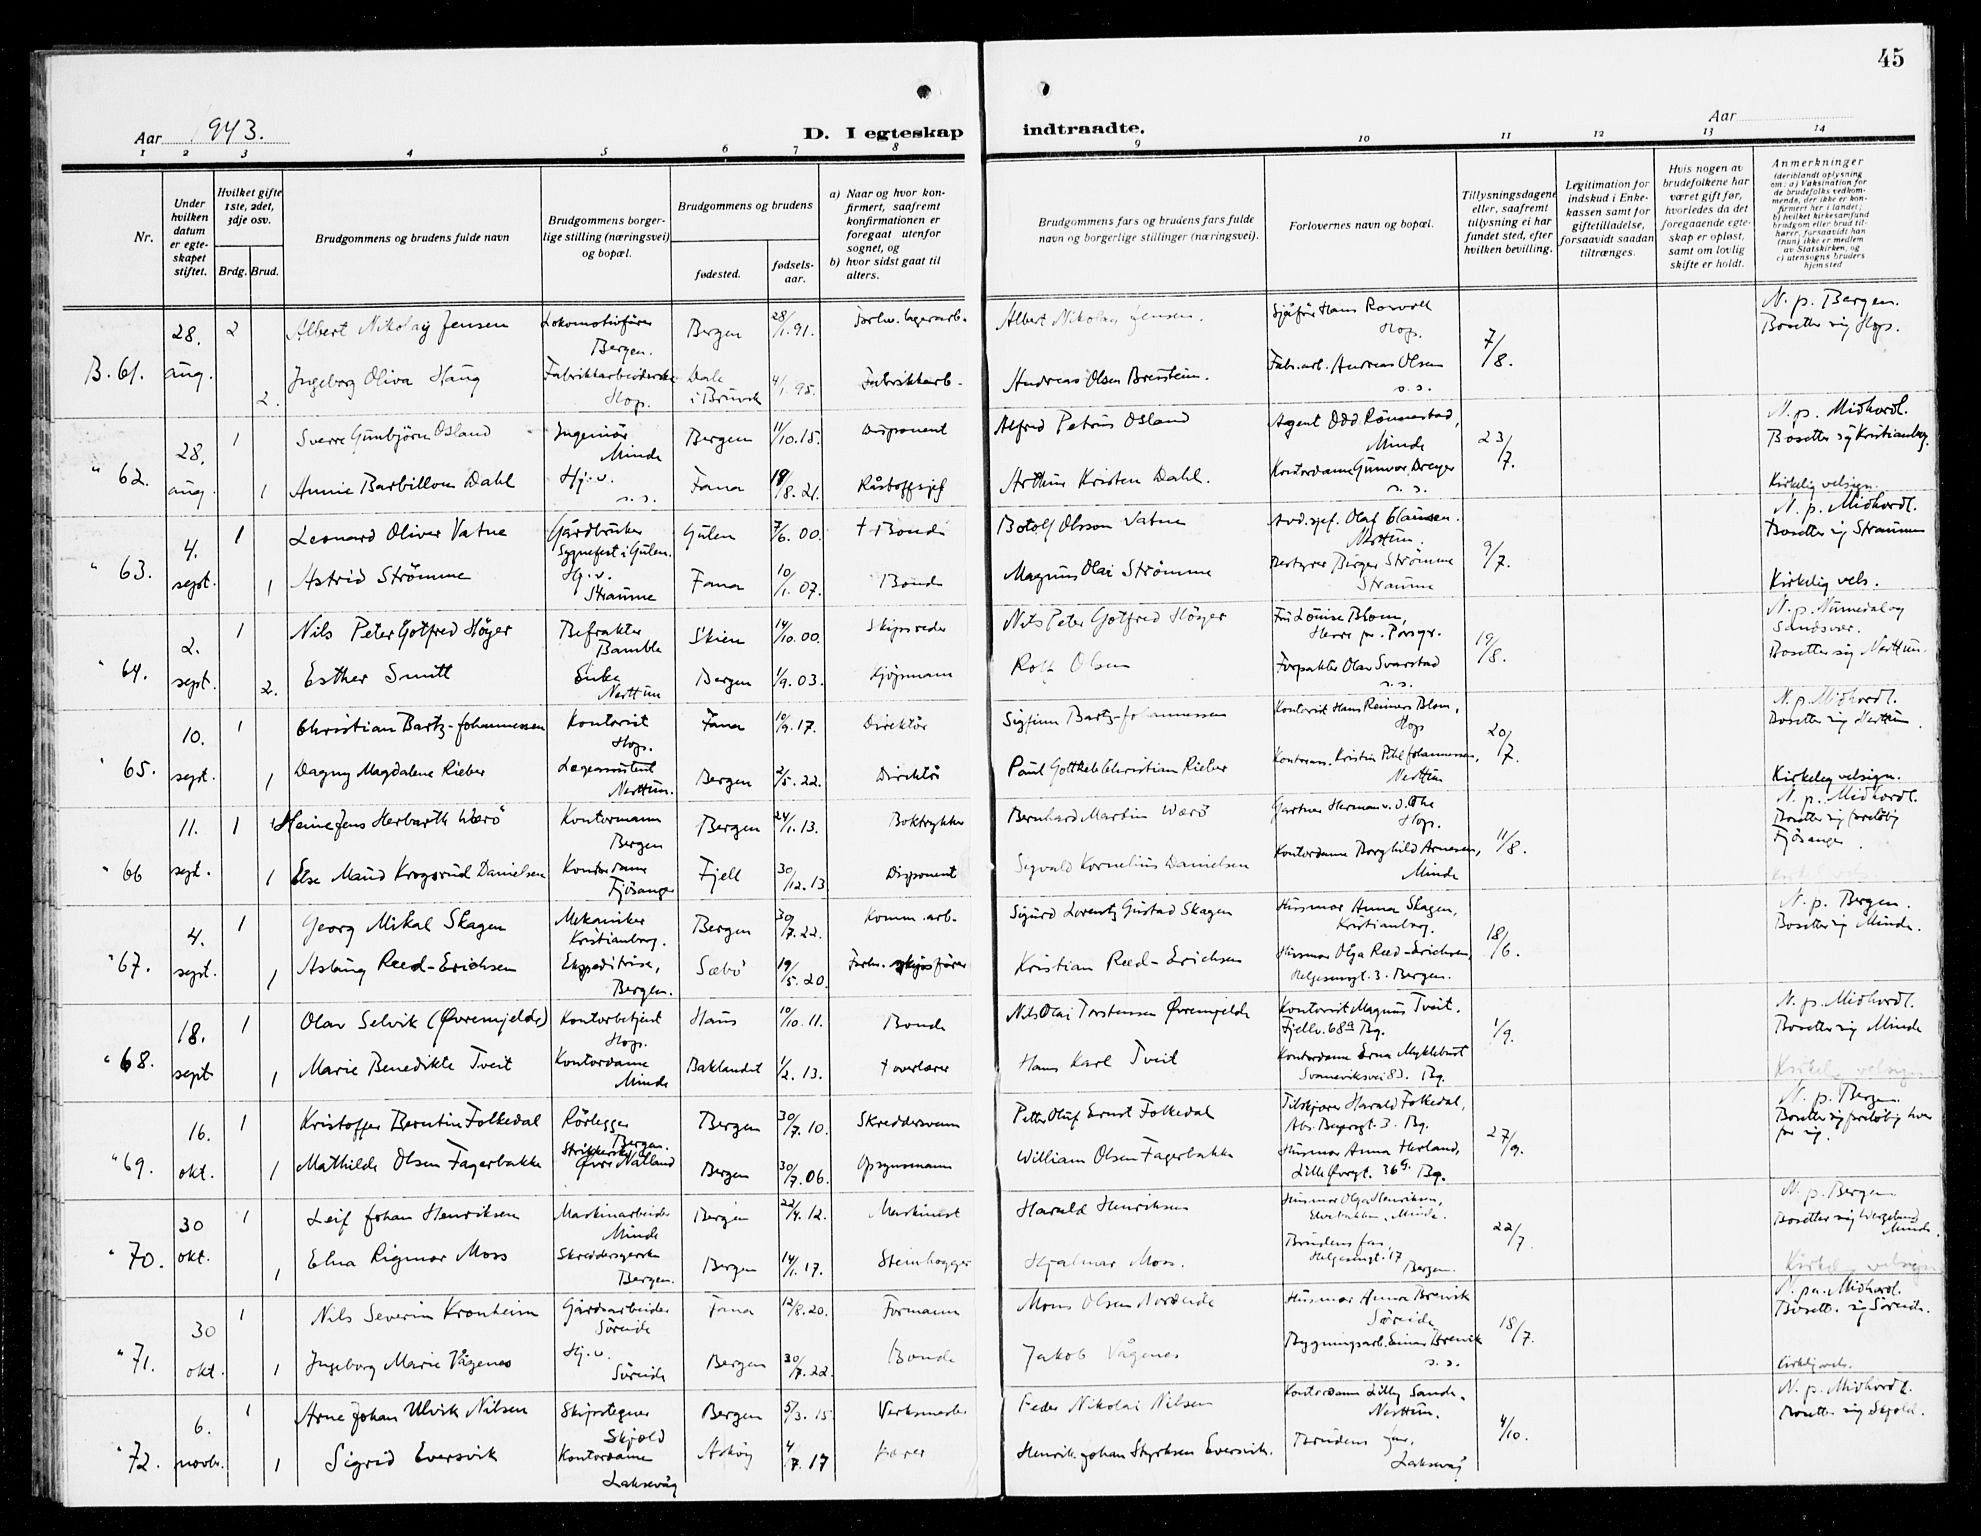 45
Aar 1943.
D. I egteskap
indtraadte.
Aar
1 2 3 4 5 6 7 8 9 10 11 12 13 14
Nr.
Under hvilken datum er egteskapet stiftet.
Hvilket gifte 1ste, 2det, 3dje osv.
Brdg. Brud.
Brudgommens og brudens fulde navn
Brudgommens borgerlige stilling (næringsvei) og bopæl.
Brudgommens og brudens
fødested.
fødselsaar.
a) Naar og hvor konfirmert, saafremt konfirmationen er foregaat utenfor sognet, og
b) hvor sidst gaat til alters.
Brudgommens fars og brudens fars fulde navn og borgerlige stillinger (næringsvei).
Forlovernes navn og bopæl.
Tillysningsdagene eller, saafremt tillysning ei har fundet sted, efter hvilken bevilling.
Legitimation for indskud i Enkekassen samt for giftetilladelse, forsaavidt saadan tiltrænges.
Hvis nogen av brudefolkene har været gift før, hvorledes da det foregaaende egteskap er opløst, samt om lovlig skifte er holdt.
Anmerkninger (deriblandt oplysning om: a) Vaksination for de brudefolks vedkommende, der ikke er konfirmert her i landet; b) hvilket kirkesamfund brudgom eller brud tilhører, forsaavidt han (hun) ikke er medlem av Statskirken, og c) utensogns bruders hjemsted
B. 61. 28. aug. 2 Albert Nikolay Jensen Lokomotivfører Bergen. Bergen 28/1.91. Forhv. lagerarb. Albert Nikolay Jensen. Sjåfør Hans Hop. 7/8. N. p. Bergen. Bosetter sig Hop.
2. Ingeborg Oliva Haug Fabrikkarbeiderske Hop. Dale i Bruvik 4/1.95. Fabrikkarb. Andreas Olsen Fabr.arb. Andreas Olsen s.s.
" 62. 28. aug. 1 Sverre Gunbjørn Osland Ingeniør Minde Bergen 11/10.15. Disponent Alfred Petrus Osland Agent Odd Rønnestad, Minde 23/7. N. p. Midhordl. Bosetter sig Kristianborg.
1 Annie Barbillou Dahl Hj. v. s.s. Fana 19/8.21. Råstoffsjef Arthur Kristen Dahl. Kontordame Gunvor Dreyer s.s. Kirkelig velsign.
" 63. 4. sept. 1 Leonard Oliver Vatne Gårdbruker Sygnefest i Gulen. Gulen 7/6.00. † Bonde Botolf Olsson Vatne Avd.sjef. Olaf Clausen. Nesttun. 9/7. N. p. Midhordl. Bosetter sig Straumme
1 Astrid Strømme Hj. v. Straume Fana 10/1.07. Bonde Magnus Olai Strømme Bestyrer Birger Strømme Straume Kirkelig vels.
" 64. 2. sept. 1 Nils Peter Gotfred Høyer Befrakter Bamble Skien 14/10.00. Skipsreder Nils Peter Gotfred Høyer Fru Louise Blom, Herre pr. Porsgr. 19/8. N. p. Numedal og Sandsvær. Bosetter sig Nesttun.
2. Esther Smitt Enke Nesttun Bergen 1/9.03. Kjøpmann Rolf Olsen Forpakter Olav Svarstad s.s.
" 65. 10. sept. 1 Christian Bartz-Johannessen Kontorist Hop. Fana 10/9.17. Direktør Sigfinn Bartz-Johannessen Kontorist Hans Reimers Blom, Hop 20/7. N. p. Midhordl. Bosetter sig Nesttun.
1 Dagny Magdalene Rieber Legeassistent Nesttun. Bergen 2/5.22. Direktør Paul Gottlieb Christian Rieber Kontorass. Kristin Pihl Johannessen, Nesttun Kirkeleg velsign.
" 66 11. sept. 1 Heine Jens Herbarth Værø Kontormann Bergen Bergen 24/1.13. Boktrykker Bernhard Martin Værø Gartner Herman v. d. Ohe Hop. 11/8. N. p. Midhordl. Bosetter sig foreløbig Fjøsanger.
1 Else Maud Krogsrud Danielsen Kontordame Fjøsanger Fjell 30/12.13 Disponent Sigvald Kornelius Danielsen Kontordame Borghild Arnesen, Minde
" 67. 4. sept. 1 Georg Mikal Skagen Mekaniker Kristianborg. Bergen 30/7.22. Komm. arb. Sigurd Lorentz Gustad Skagen Husmor Anna Skagen, Kristianborg. 18/6. N. p. Bergen. Bosetter sig Minde.
1 Aslaug Reed-Erichsen Ekspeditrise, Bergen. Sæbø 19/5.20. Forhv. skipsfører Kristian Reed-Erichsen Husmor Olga Reed-Erichsen, Helgesensgt. 3. Bergen.
" 68. 18. sept 1 Olav Selvik (Øvremjelde) Kontorbetjent Hop. Haus 10/10.11. Bonde Nils Olai Torstensen Øvremjelde Kontorist Magnus Tveit. Fjellv. 68a Bg. 1/9. N. p. Midhordl. Bosetter sig Minde
1 Marie Benedikte Tveit Kontordame Minde Baklandet 1/2.13. † overlærer Hans Karl Tveit Kontordame Erna Myklebust Svaneviksvei 83. Bg. Kirkelig velsign.
" 69. 16. okt. 1 Kristoffer Berntin Folkedal Rørlegger Bergen. Bergen 30/7.10. Skreddersvenn Petter Oluf Ernst Folkedal Tilskjærer Harald Folkedal, 3. Bg. 27/9. N. p. Bergen. Bosetter sig foreløbig hver for sig.
1 Mathilde Olsen Fagerbakke Strikkerske Øvre Natland Bergen 30/7.06. Opsynsmann William Olsen Fagerbakke Husmor Anna Herland, Lille Øvregt. 36a. Bg.
" 70. 30 okt. 1 Leif Johan Henriksen Maskinarbeider Minde Bergen 22/4.12. Maskinist Harald Henriksen Husmor Olga Henriksen, Minde. 22/7. N. p. Bergen Bosetter sig Wergeland Minde.
1 Elna Rigmor Moss Skreddersyerske Bergen. Bergen 14/1.17. Steinhogger Hjalmar Moss. Brudens far Helgesensgt. 17 Bergen. Kirkelig velsign
" 71. 30 okt. 1 Nils Severin Kronheim Gårdsarbeider Søreide Fana 12/8.20. Formann Mons Olsen Nordeide Husmor Anna Brevik Søreide 18/7. N. p. Midhordl. Bosett. sig Søreide.
1 Ingeborg Marie Vågenes Hj. v. Søreide Bergen 30/7.22. Bonde Jakob Vågenes Bygningsarb. Einar Brevik s.s. Kirkelig vels.
" 72. 6. novbr. 1 Arne Johan Ulvik Nilsen Skipstegner Skjold Bergen 5/3.15 Verksmester Peder Nikolai Nilsen Kontordame Lilly Sande. Nesttun. 4/10. N. p. Midhordl. Bosetter sig Skjold.
1 Sigrid Eversvik Kontordame Laksevåg Askøy 4/7.17 Lærer Henrik Johan Styrksen Eversvik. Brudens far, Laksevåg